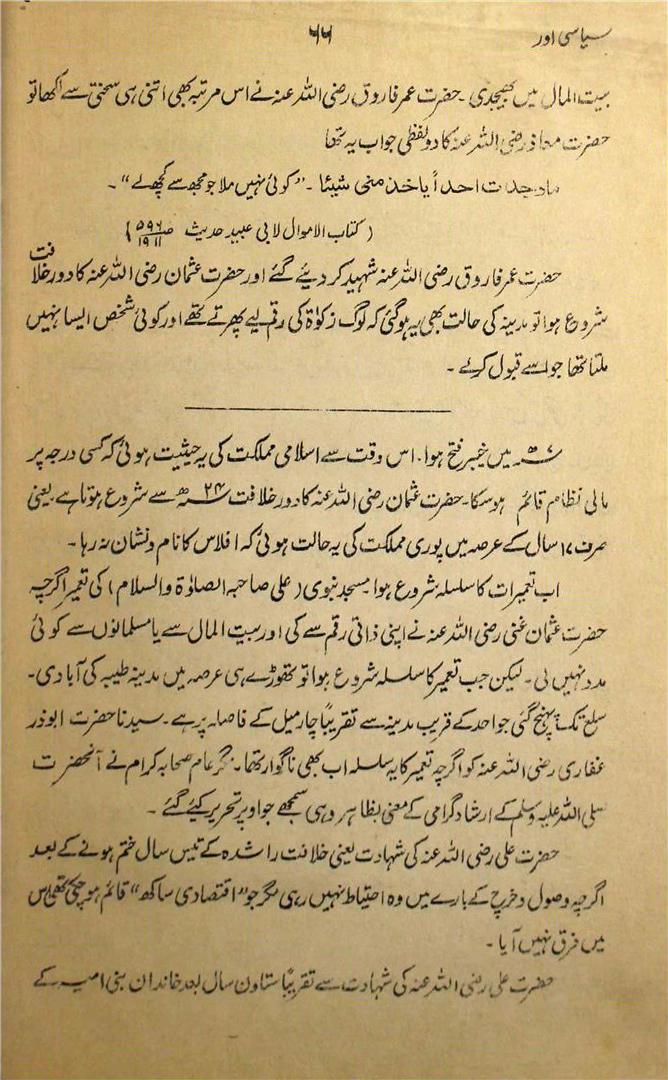 سیاسی اور
۶۶
بیت المال میں بھیجدی ۔ حضرت عمر فاروق رضی اللہ عنہ نے اس مرتبہ بھی اتنی ہی سختی سے لکھا تو
حضرت معاذ رضی اللہ عنہ کا دو لفظی جواب یہ تھا
ماوجدت احداً یاخذ منی شیئا ۔ ”کوئی نہیں ملا جو مجھ سے کچھ لے“ ۔
( کتاب الاموال لابی عبید حدیث ۱۹۱۱ ص ۵۹۶ )
حضرت عمر فاروق رضی اللہ عنہ شہید کر دیئے گئے اور حضرت عثمان رضی اللہ عنہ کا دور خلافت
شروع ہوا تو مدینہ کی حالت بھی یہ ہو گئی کہ لوگ زکوٰۃ کی رقم لیے پھرتے تھے اور کوئی شخص ایسا نہیں
ملتا تھا جو اسے قبول کرے ۔
۷ھ میں خیبر فتح ہوا ۔ اس وقت سے اسلامی مملکت کی یہ حیثیت ہوئی کہ کسی درجہ پر
مالی نظام قائم ہو سکا ۔ حضرت عثمان رضی اللہ عنہ کا دور خلافت ۲۴ھ سے شروع ہوتا ہے ۔ یعنی
صرف ۱۷ سال کے عرصہ میں پوری مملکت کی یہ حالت ہوئی کہ افلاس کا نام و نشان نہ رہا ۔
اب تعمیرات کا سلسلہ شروع ہوا ۔ مسجد نبوی ( علی صاحبہ الصلوٰۃ والسلام ) کی تعمیر اگرچہ
حضرت عثمان غنی رضی اللہ عنہ نے اپنی ذاتی رقم سے کی اور بیت المال سے یا مسلمانوں سے کوئی
مدد نہیں لی ۔ لیکن جب تعمیر کا سلسلہ شروع ہوا تو تھوڑے ہی عرصہ میں مدینہ طیبہ کی آبادی ۔
سلع تک پہنچ گئی جو احد کے قریب مدینہ سے تقریباً چار میل کے فاصلہ پر ہے ۔ سیدنا حضرت ابوذر
غفاری رضی اللہ عنہ کو اگرچہ تعمیر کا یہ سلسلہ اب بھی ناگوار تھا ۔ مگر عام صحابہ کرام نے آنحضرت
صلی اللہ علیہ وسلم کے ارشاد گرامی کے معنی بظاہر وہی سمجھے جو اوپر تحریر کیئے گئے ۔
حضرت علی رضی اللہ عنہ کی شہادت یعنی خلافت راشدہ کے تیس سال ختم ہونے کے بعد
اگرچہ وصول و خرچ کے بارے میں وہ احتیاط نہیں رہی مگر جو ”اقتصادی ساکھ“ قائم ہو چکی تھی اس
میں فرق نہیں آیا ۔
حضرت علی رضی اللہ عنہ کی شہادت سے تقریباً ستاون سال بعد خاندان بنی امیہ کے